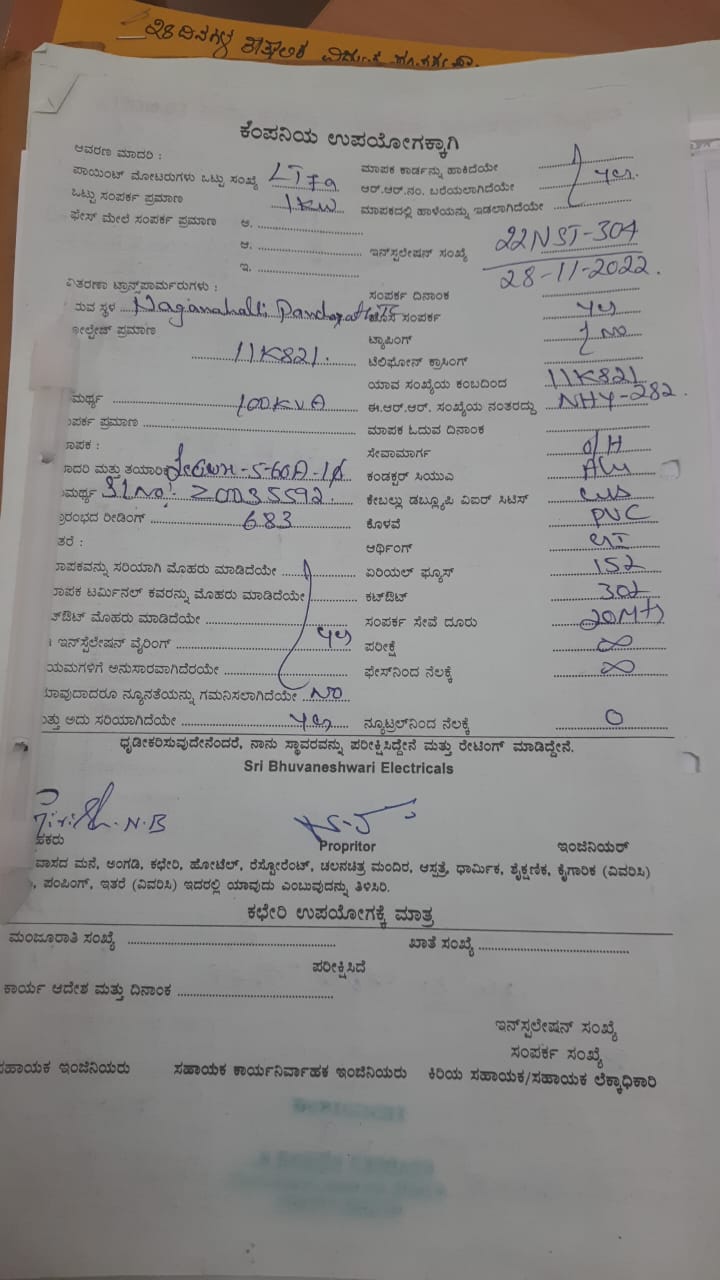 28 ದಿನಗಳ ತಾತ್ಕಾಲಿಕ ವಿದ್ಯುತ್
ಕೆಂಪನಿಯ ಉಪಯೋಗಕ್ಕಾಗಿ
ಆವರಣ ಮಾದರಿ :
ಮಾಪಕ ಕಾರ್ಡನ್ನು ಹಾಕಿದೆಯೇ
ಪಾಯಿಂಟ್ ಮೋಟರುಗಳು ಒಟ್ಟು ಸಂಖ್ಯೆ LT7a ಆರ್.ಆರ್.ನಂ. ಬರೆಯಲಾಗಿದೆಯೇ yes.
ಒಟ್ಟು ಸಂಪರ್ಕ ಪ್ರಮಾಣ 1KW ಮಾಪಕದಲ್ಲಿ ಹಾಳೆಯನ್ನು ಇಡಲಾಗಿದೆಯೇ
ಫೇಸ್ ಮೇಲೆ ಸಂಪರ್ಕ ಪ್ರಮಾಣ ಅ.
ಆ. ಇನ್‌ಸ್ಟಲೇಷನ್ ಸಂಖ್ಯೆ 22NST-304
ಇ. 28-11-2022.
ವಿತರಣಾ ಟ್ರಾನ್ಸ್‌ಪಾರ್ಮರುಗಳು : ಸಂಪರ್ಕ ದಿನಾಂಕ
ರುವ ಸ್ಥಳ Naganahalli ಸಂಪರ್ಕ yes
ೋಲ್ಟೇಜ್ ಪ್ರಮಾಣ ಟ್ಯಾಪಿಂಗ್ NO
11K821. ಟೆಲಿಫೋನ್ ಕ್ರಾಸಿಂಗ್
ಯಾವ ಸಂಖ್ಯೆಯ ಕಂಬದಿಂದ 11K821
ಮರ್ಥ್ಯ 100KVA ಈ.ಆರ್.ಆರ್. ಸಂಖ್ಯೆಯ ನಂತರದ್ದು NHY-282.
ಂಪರ್ಕ ಪ್ರಮಾಣ ಮಾಪಕ ಓದುವ ದಿನಾಂಕ
ಾಪಕ : ಸೇವಾಮಾರ್ಗ O/H
ಾದರಿ ಮತ್ತು ತಯಾರಿಕ 5-60A-1ϕ ಕಂಡಕ್ಟರ್ ಸಿಯುಎ Alu
ಮರ್ಥ್ಯ Sl No: 20035592 ಕೇಬಲ್ಲು ಡಬ್ಲ್ಯೂಪಿ ವಿಐರ್ ಸಿಟಿಸ್
ಪ್ರಾರಂಭದ ರೀಡಿಂಗ್ 683 ಕೊಳವೆ PVC
ತರೆ : ಆರ್ಥಿಂಗ್
ಾಪಕವನ್ನು ಸರಿಯಾಗಿ ಮೊಹರು ಮಾಡಿದೆಯೇ ಏರಿಯಲ್ ಫ್ಯೂಸ್
ಾಪಕ ಟರ್ಮಿನಲ್ ಕವರನ್ನು ಮೊಹರು ಮಾಡಿದೆಯೇ ಕಟ್‌ಔಟ್
ಟ್‌ಔಟ್ ಮೊಹರು ಮಾಡಿದೆಯೇ ಸಂಪರ್ಕ ಸೇವೆ ದೂರು 20Mts
ಇನ್‌ಸ್ಟೆಲೇಷನ್ ವೈರಿಂಗ್ yes ಪರೀಕ್ಷೆ ∞
ಯಮಗಳಿಗೆ ಅನುಸಾರವಾಗಿದೆರಯೇ ಫೇಸ್‌ನಿಂದ ನೆಲಕ್ಕೆ ∞
ಾವುದಾದರೂ ನ್ಯೂನತೆಯನ್ನು ಗಮನಿಸಲಾಗಿದೆಯೇ NO
ತ್ತು ಅದು ಸರಿಯಾಗಿದೆಯೇ yes ನ್ಯೂಟ್ರಲ್‌ನಿಂದ ನೆಲಕ್ಕೆ 0
ಧೃಡೀಕರಿಸುವುದೇನೆಂದರೆ, ನಾನು ಸ್ಥಾವರವನ್ನು ಪರೀಕ್ಷಿಸಿದ್ದೇನೆ ಮತ್ತು ರೇಟಿಂಗ್ ಮಾಡಿದ್ದೇನೆ.
Sri Bhuvaneshwari Electricals
Girish.N.B
ಪಕರು Propritor ಇಂಜಿನಿಯರ್
ವಾಸದ ಮನೆ, ಅಂಗಡಿ, ಕಛೇರಿ, ಹೋಟೆಲ್, ರೆಸ್ಟೋರೆಂಟ್, ಚಲನಚಿತ್ರ ಮಂದಿರ, ಆಸ್ಪತ್ರೆ, ಧಾರ್ಮಿಕ, ಶೈಕ್ಷಣಿಕ, ಕೈಗಾರಿಕ (ವಿವರಿಸಿ)
, ಪಂಪಿಂಗ್, ಇತರೆ (ವಿವರಿಸಿ) ಇದರಲ್ಲಿ ಯಾವುದು ಎಂಬುವುದನ್ನು ತಿಳಿಸಿರಿ.
ಕಛೇರಿ ಉಪಯೋಗಕ್ಕೆ ಮಾತ್ರ
ಮಂಜೂರಾತಿ ಸಂಖ್ಯೆ ಖಾತೆ ಸಂಖ್ಯೆ
ಪರೀಕ್ಷಿಸಿದೆ
ಕಾರ್ಯ ಆದೇಶ ಮತ್ತು ದಿನಾಂಕ
ಇನ್‌ಸ್ಟಲೇಷನ್ ಸಂಖ್ಯೆ
ಸಂಪರ್ಕ ಸಂಖ್ಯೆ
ಸಹಾಯಕ ಇಂಜಿನಿಯರು ಸಹಾಯಕ ಕಾರ್ಯನಿರ್ವಾಹಕ ಇಂಜಿನಿಯರು ಕಿರಿಯ ಸಹಾಯಕ/ಸಹಾಯಕ ಲೆಕ್ಕಾಧಿಕಾರಿ